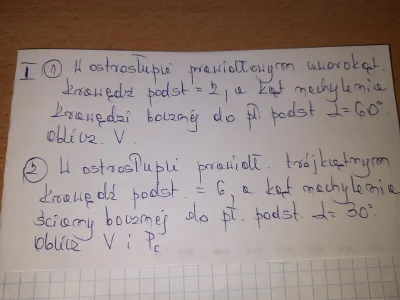 I ① W ostrosłupie prawidłowym czworokąt.
krawędź podst = 2, a kąt nachylenia
krawędzi bocznej do pł. podst α=60°.
Oblicz. V.
② W ostrosłupie prawidł. trójkątnym
krawędź podst. = 6, a kąt nachylenia
ściany bocznej do pł. podst. α= 30°.
Oblicz V i Pc.